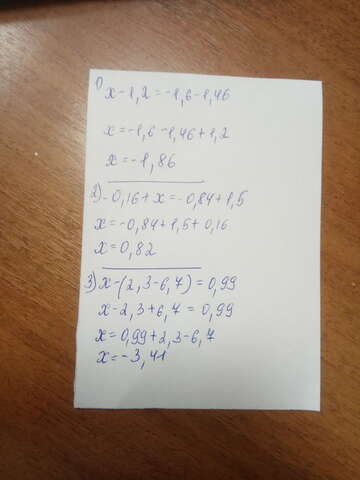 1) x-1,2=-1,6-1,46
x=-1,6-1,46+1,2
x=-1,86
2) -0,16+x=-0,84+1,5
x=-0,84+1,5+0,16
x=0,82
3) x-(2,3-6,7)=0,99
x-2,3+6,7=0,99
x=0,99+2,3-6,7
x=-3,41